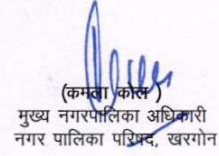 (कमला कोल )
मुख्य नगरपालिका अधिकारी
नगर पालिका परिषद, खरगोन